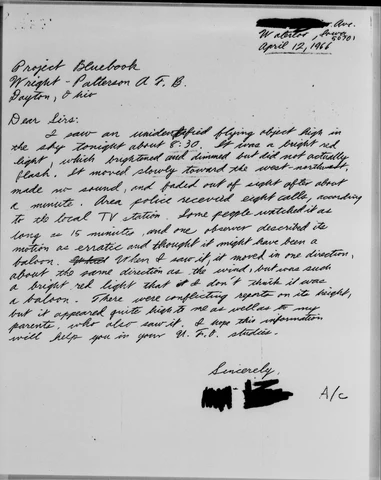 Ave.
Waterloo, Iowa
50701
April 12, 1966
Project Bluebook
Wright-Patterson A.F.B.
Dayton, Ohio
Dear Sirs:
I saw an unidentified flying object high in
the sky tonight about 8:30. It was a bright red
light, which brightened and dimmed but did not actually
flash. It moved slowly toward the west-northwest,
made no sound, and faded out of sight after about
a minute. Area police received eight calls, according
to the local TV station. Some people watched it as
long as 15 minutes, and one observer described its
motion as erratic and thought it might have been a
baloon. When I saw it, it moved in one direction,
about the same direction as the wind; but was such
a bright red light that I don't think it was
a baloon. There were conflicting reports on its height,
but it appeared quite high to me as well as to my
parents, who also saw it. I hope this information
will help you in your U.F.O. studies.
Sincerely,
A/c